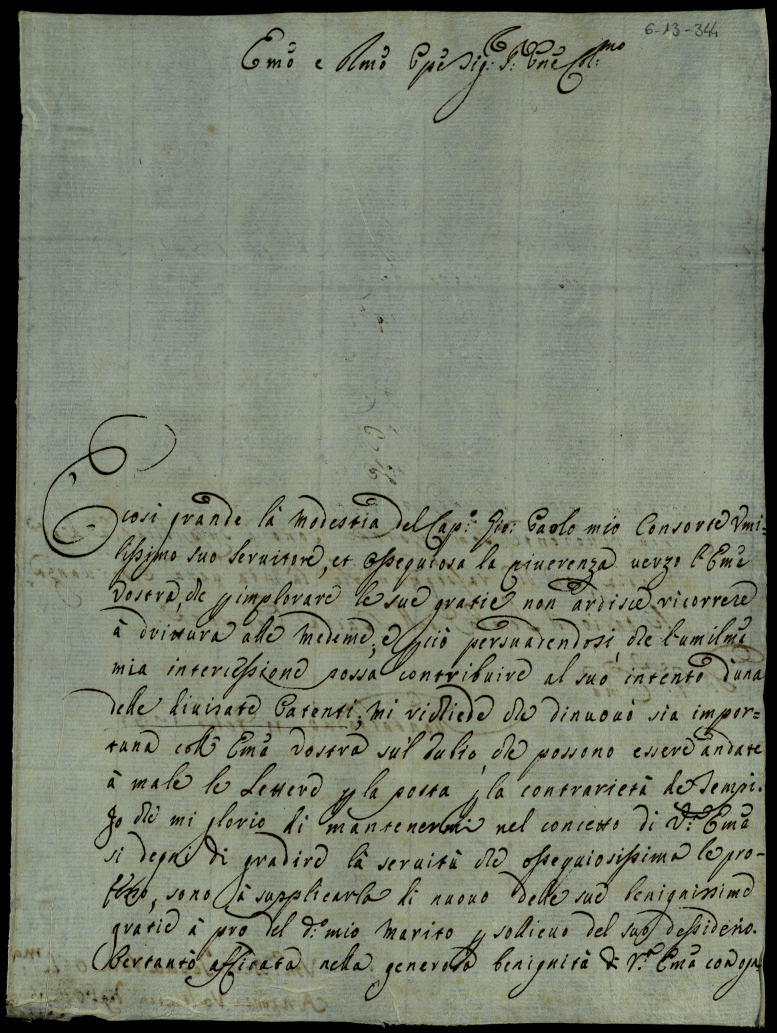 6-13-34
Emo e Rmo Ppe Sig: P: Pne Col:mo
E così grande là modestia del Cap:o Gio: Paolo mio Consorte Vmi-
lissimo suo servitore, et ossequiosa la riuerenza uerzo l'Ema
Vostra, che p implorare le sue gratie non ardisce ricorrere
à drittura alle medeme, e p ciò persuadendosi, che l'umilma
mia intercessione possa contribuire al suo intento d'una
delle diuisate Patenti, mi richiede che dinuouo sia impor=
tuna coll' Ema Vostra sul dubio, che possono essere andate
à male le Lettere p la posta p la contrarietà de Tempi.
Io che mi glorio di mantenermi nel concetto di V:a Ema
si degni di gradire là seruitù che ossequiosissima le pro-
fesso, sono à supplicarla di nuouo delle sue benignissime
gratie à pro del d:o mio Marito p sollieuo del suo dessiderio.
Pertanto afficata nella generosa benignità di V:a Ema con ogn